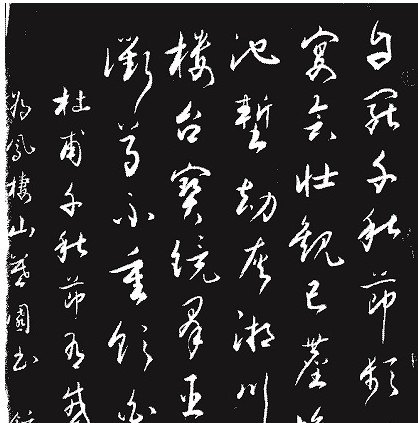 自罷千秋節頻
宴會壯觀已塵
池塹劫灰湘川
樓台寶鏡群臣
衢尊不重飲白
杜甫千秋節有感
為鳳棲山園書